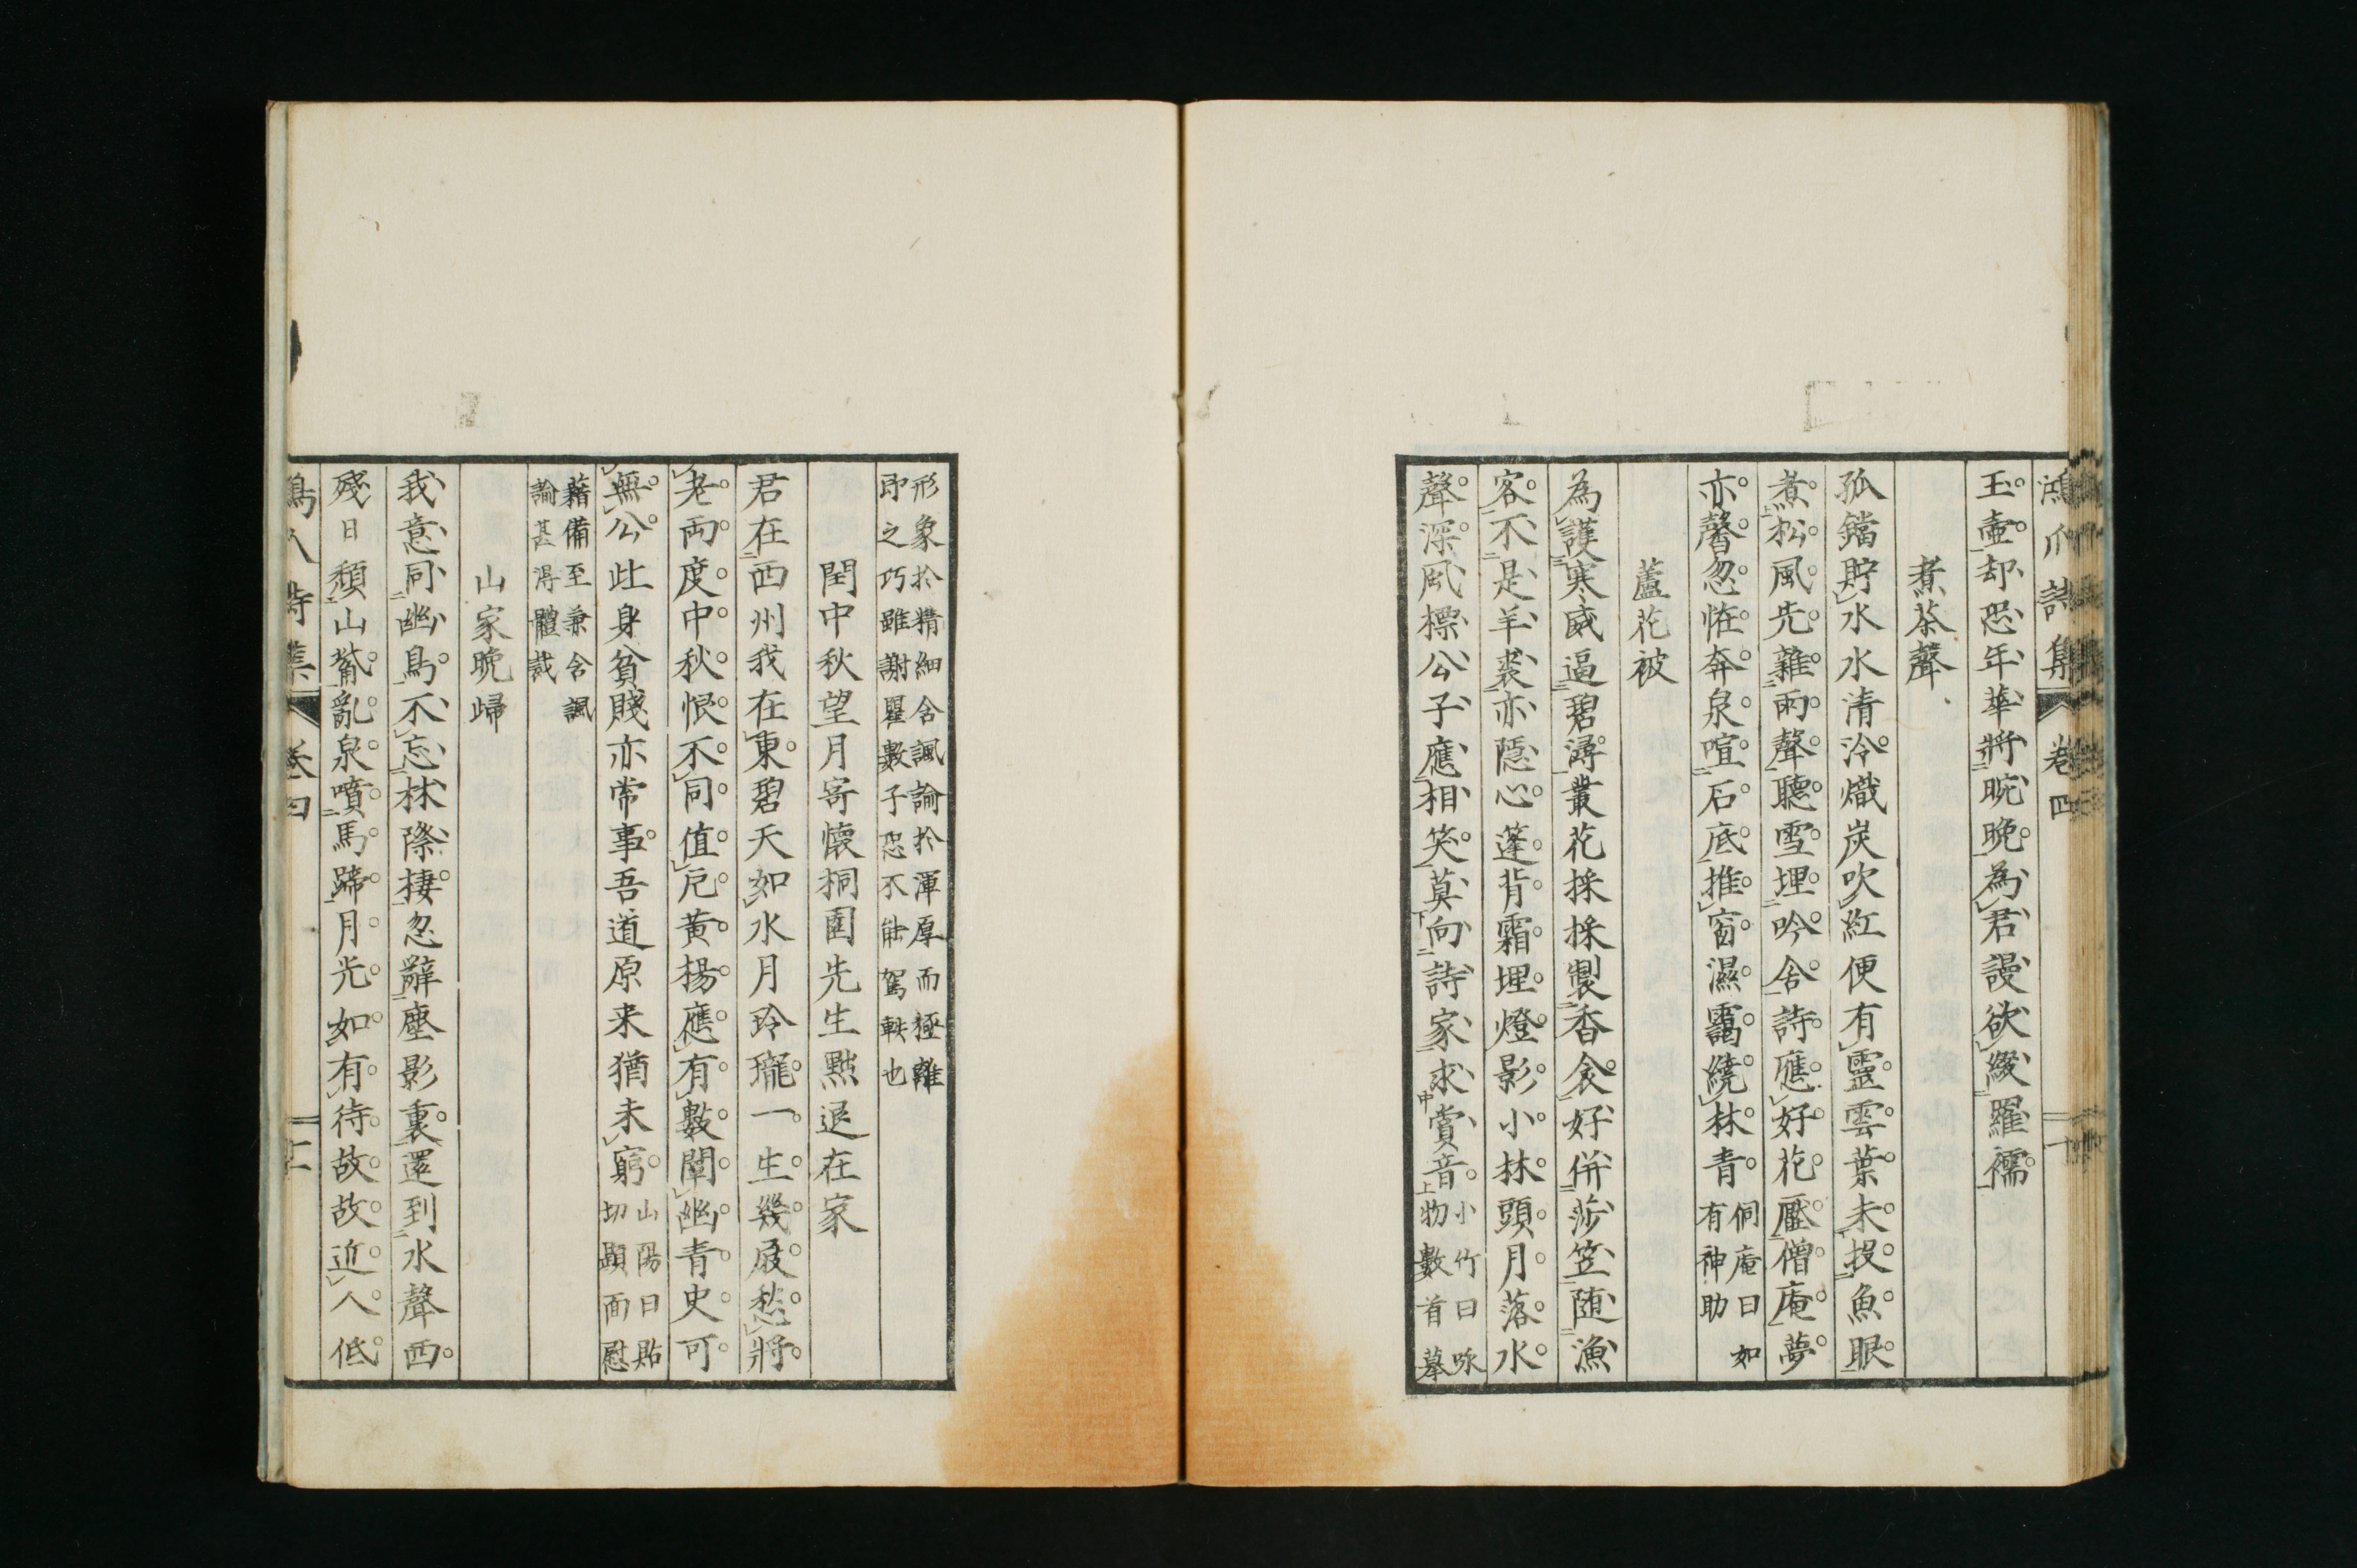 鴻爪詩集 卷四
玉壺却恐年華將晼晚為君謾欲綴羅襦
煮茶聲
孤鐺貯水水清泠熾炭吹紅便有靈雲葉未投魚眼
煮松風先雜雨聲聽雪埋吟舍詩應好花壓僧庵夢
亦馨忽恠奔泉喧石底推窗濕靄繞林青
侗庵曰如
有神助
蘆花被
為護寒威逼碧潯叢花採採製香衾好併莎笠随漁
客不是羊裘亦隱心蓬背霜埋燈影小林頭月落水
聲深風標公子應相笑莫向詩家求賞音
小竹曰咏
物數首摹
形象於精細含諷諭於渾厚而極雜
即之巧雖謝瞿數子恐不能駕軼也
閏中秋望月寄懷桐園先生黙退在家
君在西州我在東碧天如水月玲瓏一生幾度愁將
老兩度中秋恨不同值戹黃楊應有數闡幽青史可
無公此身貧賤亦常事吾道原来猶未窮
山陽曰貼
切顕面慰
藉備至兼含諷
諭甚得體裁
山家晩歸
我意同幽鳥不忘林際棲忽辭塵影裏還到水聲西
殘日頹山紫亂泉噴馬蹄月光如有待故故近人低
卷四